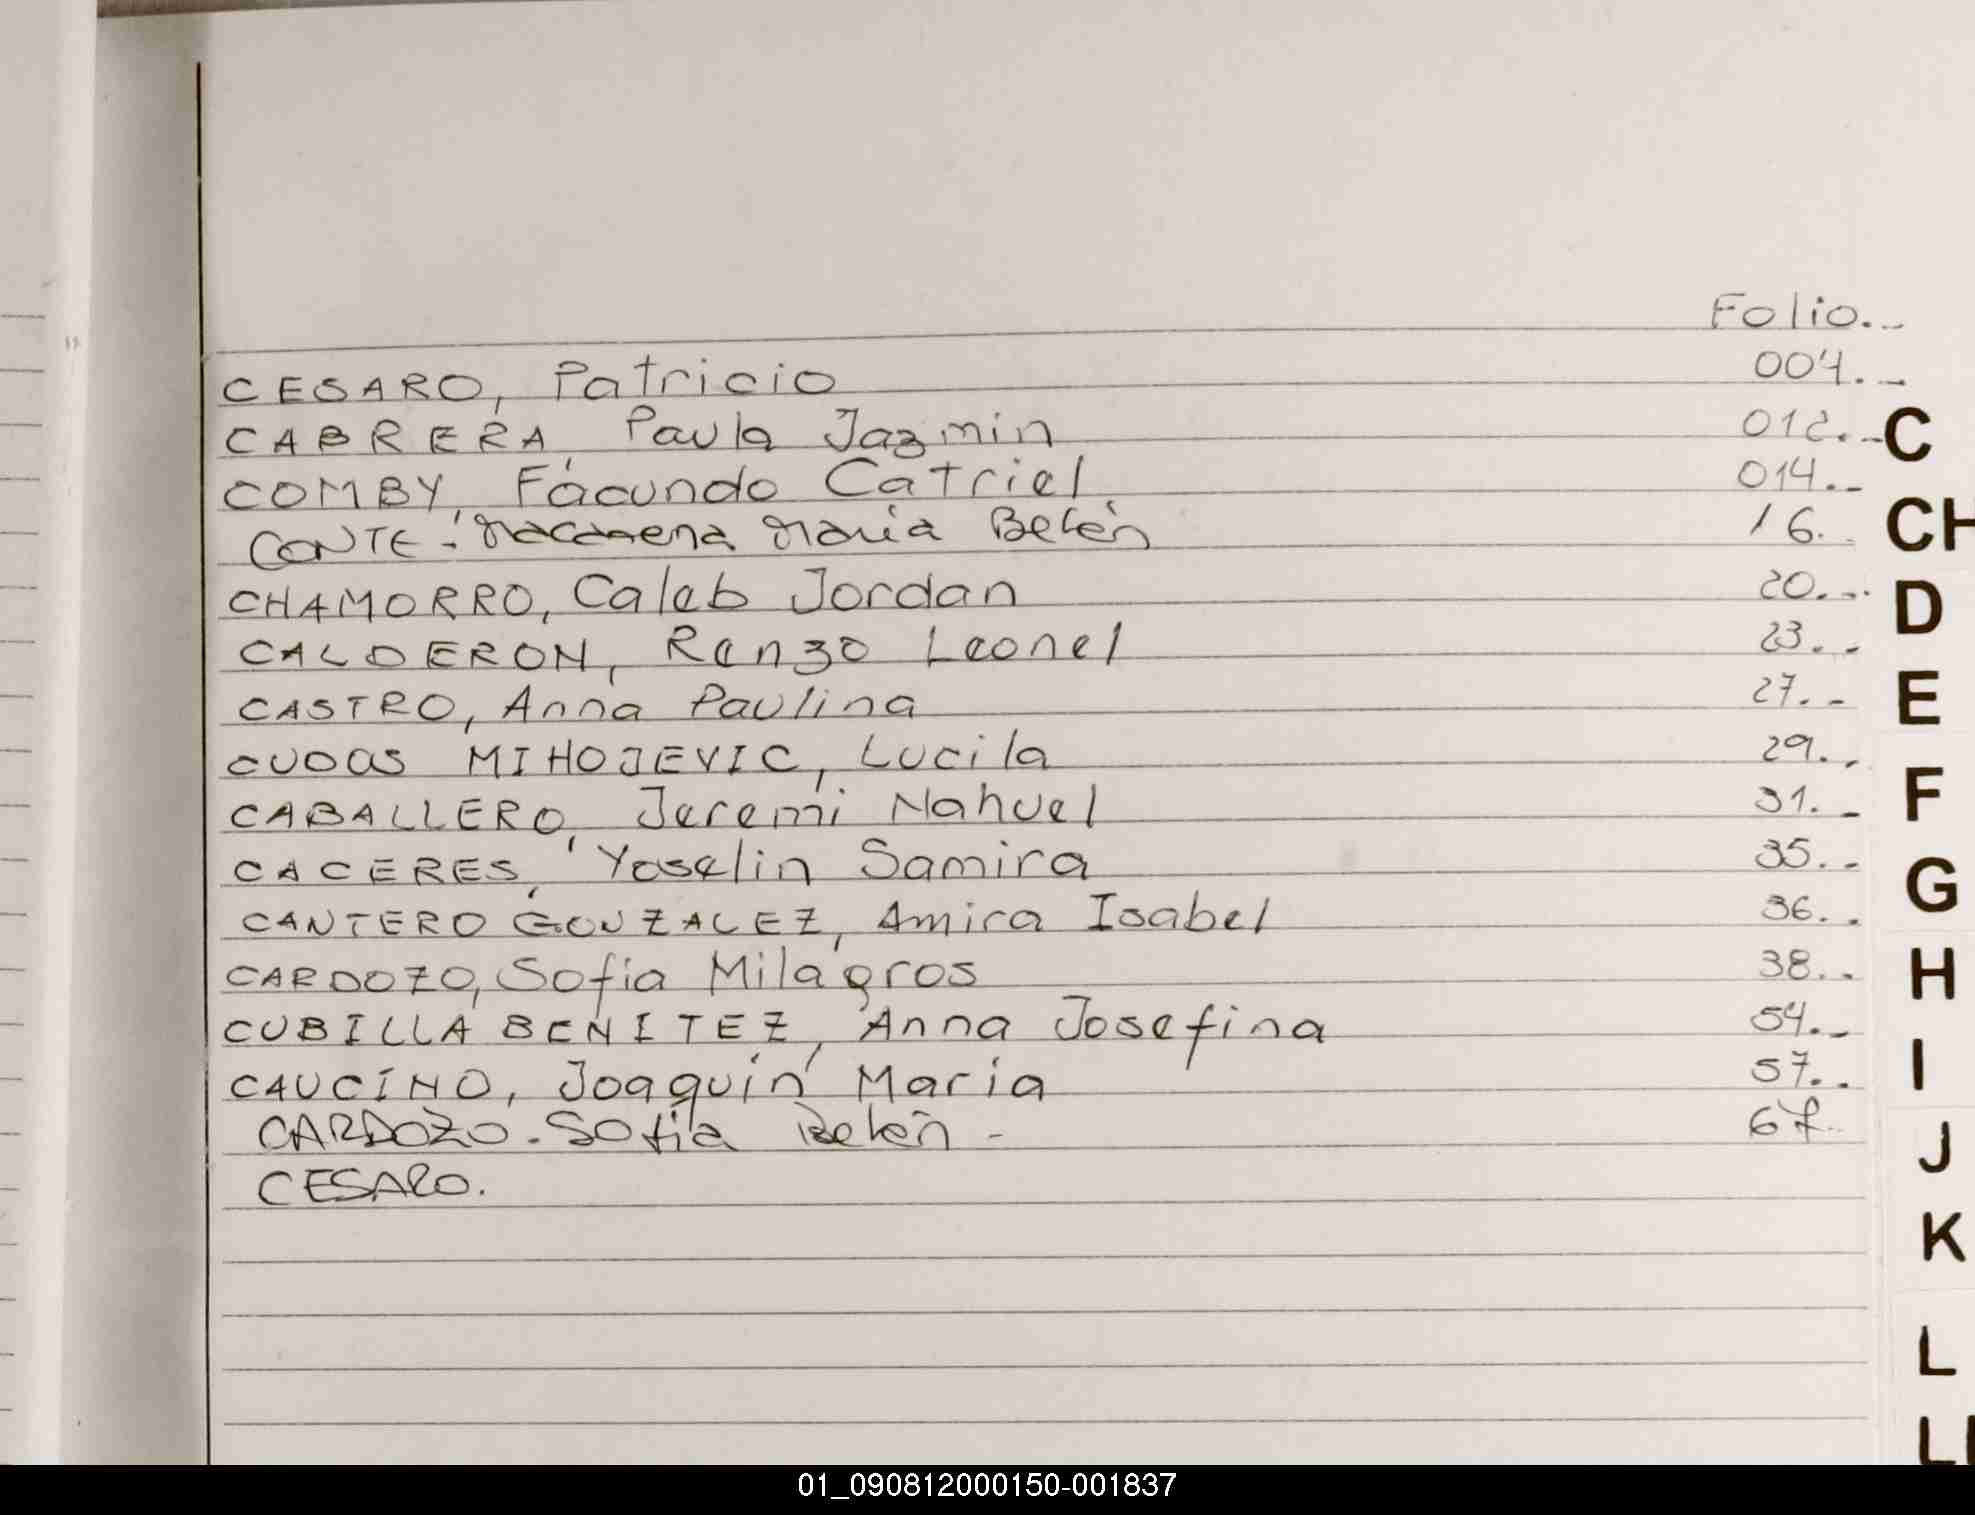 Folio.-
CESARO, Patricio 004.-
CABRERA, Paula Jazmin 012.-
COMBY, Facundo Catriel 014.-
CONTE - Macarena Maria Belén 16.-
CHAMORRO, Caleb Jordan 20.-
CALDERON, Renzo Leonel 23.-
CASTRO, Anna Paulina 27.-
MIHOJEVIC, Lucila 29.-
CABALLERO, Jeremí Nahuel 31.-
CACERES, Yoselin Samira 35.-
CANTERO GONZALEZ, Amira Isabel 36.-
CARDOZO, Sofia Milagros 38.-
CUBILLA BENITEZ, Anna Josefina 54.-
CAUCINO, Joaquín María 57.-
CARDOZO - Sofia Belén - 67.-
CESARO.
C
CH
D
E
F
G
H
I
J
K
L
01_090812000150-001837